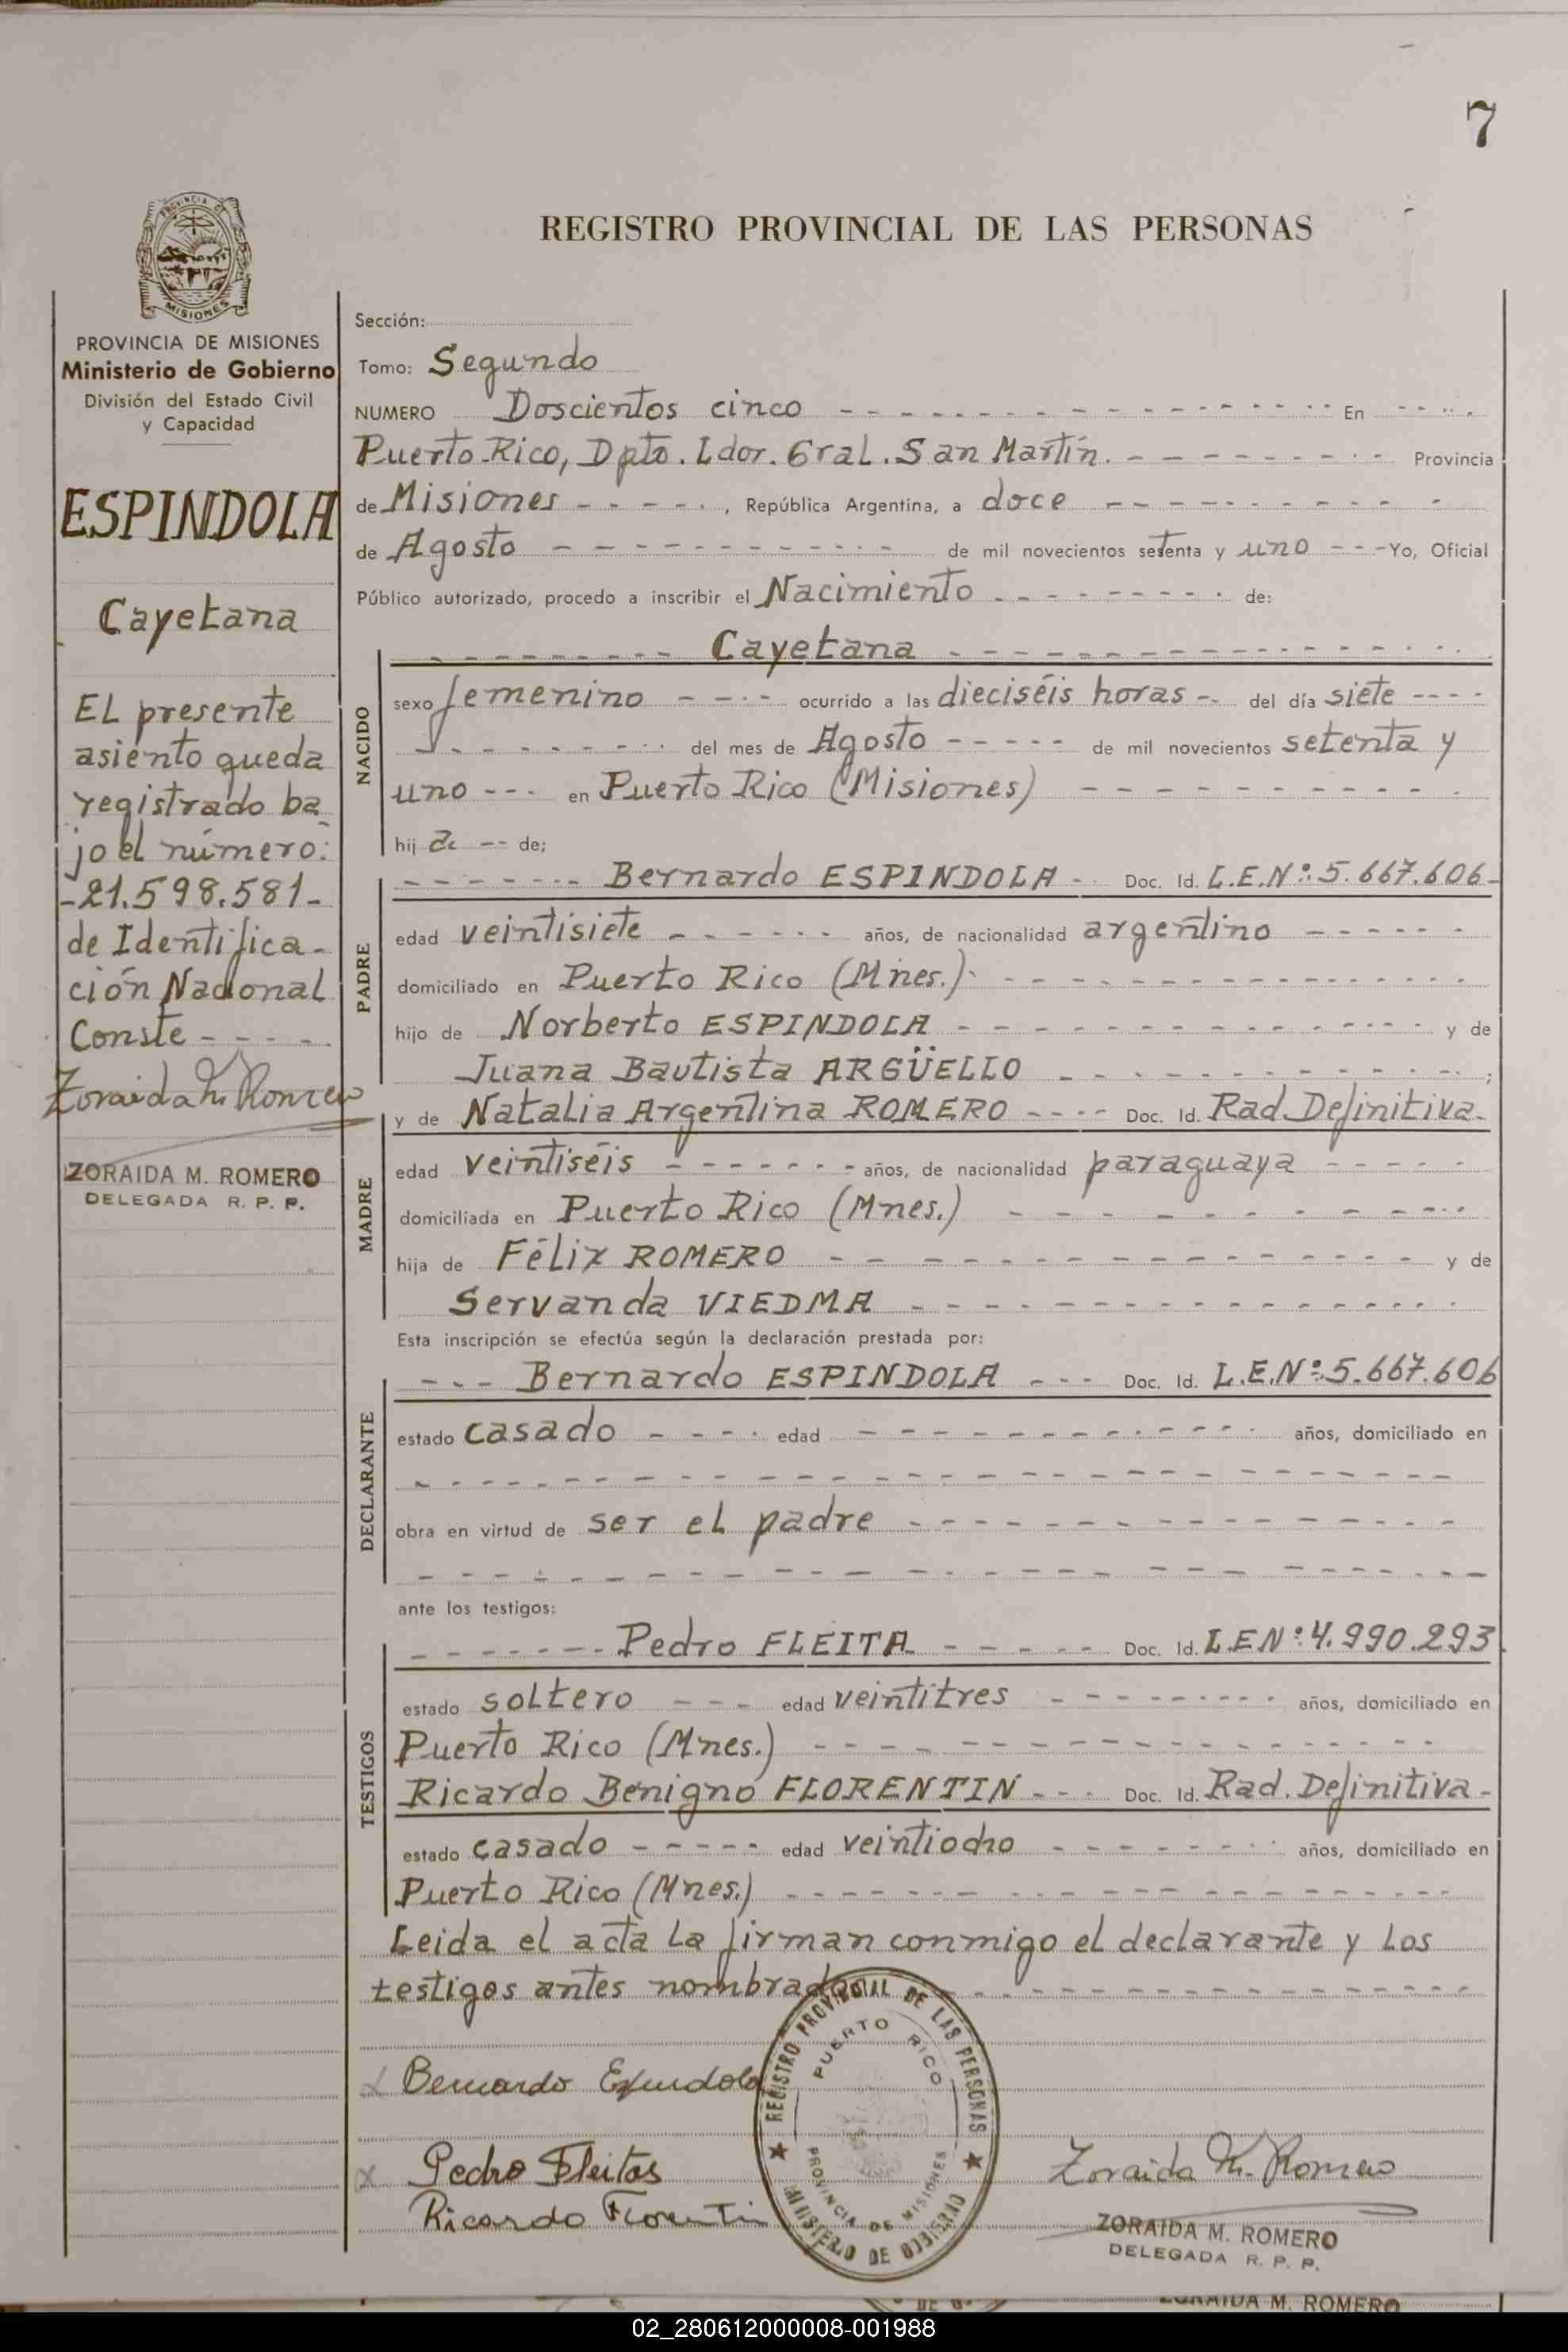 7
REGISTRO PROVINCIAL DE LAS PERSONAS
PROVINCIA DE MISIONES
Ministerio de Gobierno
División del Estado Civil
y Capacidad
ESPINDOLA
Cayetana
EL presente
asiento queda
registrado ba
jo el número:
-21.598.581-
de Identifica-
ción Nacional
Conste - - - -
Zoraida M. Romero
ZORAIDA M. ROMERO
DELEGADA R. P. P.
Sección:
Tomo: Segundo
NUMERO Doscientos cinco - - - En - - -
Puerto Rico, Dpto. Ldor. Gral. San Martín. - - - Provincia
de Misiones - - - , República Argentina, a doce - - -
de Agosto - - - de mil novecientos setenta y uno - - - Yo, Oficial
Público autorizado, procedo a inscribir el Nacimiento - - - de:
NACIDO
- - - Cayetana - - -
sexo femenino - - - ocurrido a las dieciséis horas - - del día siete - - -
- - - del mes de Agosto - - - de mil novecientos setenta y
uno - - - en Puerto Rico (Misiones) - - -
hija - - de;
PADRE
- - - Bernardo ESPINDOLA - - Doc. Id. L.E.Nº:5.667.606-
edad veintisiete - - - años, de nacionalidad argentino - - -
domiciliado en Puerto Rico (Mnes.) - - -
hijo de Norberto ESPINDOLA - - - y de
Juana Bautista ARGÜELLO - - - ;
y de Natalia Argentina ROMERO - - - Doc. Id. Rad. Definitiva-
MADRE
edad veintiséis - - - años, de nacionalidad paraguaya - - -
domiciliada en Puerto Rico (Mnes.) - - -
hija de Félix ROMERO - - - y de
Servanda VIEDMA - - -
Esta inscripción se efectúa según la declaración prestada por:
DECLARANTE
- - - Bernardo ESPINDOLA - - - Doc. Id. L.E.Nº:5.667.606
estado casado - - - edad - - - años, domiciliado en
- - -
obra en virtud de ser el padre - - -
- - -
ante los testigos:
TESTIGOS
- - - Pedro FLEITA - - - Doc. Id. L.E.Nº:4.990.293
estado soltero - - - edad veintitres - - - años, domiciliado en
Puerto Rico (Mnes.) - - -
Ricardo Benigno FLORENTIN - - - Doc. Id. Rad. Definitiva-
estado casado - - - edad veintiocho - - - años, domiciliado en
Puerto Rico (Mnes.) - - -
Leida el acta la firman conmigo el declarante y los
testigos antes nombrados - - -
REGISTRO PROVINCIAL DE LAS PERSONAS
PUERTO RICO
PROVINCIA DE MISIONES
MINISTERIO DE GOBIERNO
Bernardo Espindola
Pedro Fleitas
Ricardo Florentin
Zoraida M. Romero
ZORAIDA M. ROMERO
DELEGADA R. P. P.
ZORAIDA M. ROMERO
02_280612000008-001988